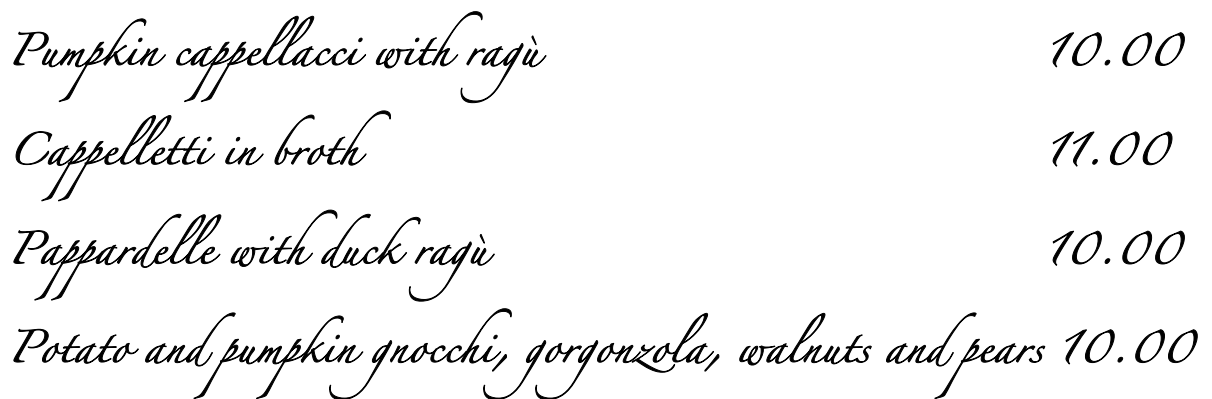 Pumpkin cappellacci with ragù 10.00
Cappelletti in broth 11.00
Pappardelle with duck ragù 10.00
Potato and pumpkin gnocchi, gorgonzola, walnuts and pears 10.00